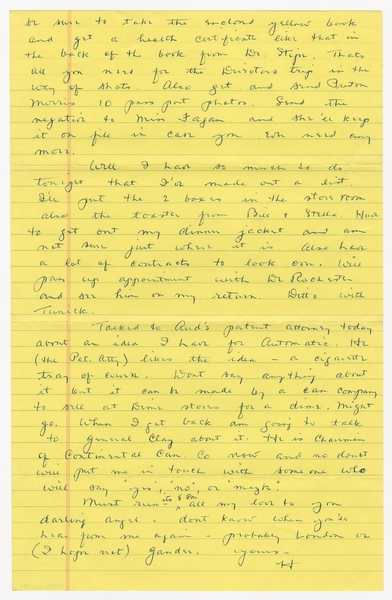 be sure to take the enclosed yellow book
and get a health certificate like that in
the back of the book from Dr. Thats
all you need for the Directors trip in the
way of shots. Also get and send
Morris 10 pass port photos. Send the
negative to Miss Fagan and she'll keep
it on file in case you ever need any
more.
Well I have so much to do
tonight that I've made out a list.
I'll put the 2 boxes in the store room
also the toaster from Bill & Stella. Have
to get out my dinner jacket and am
not sure just where it is. Also have
a lot of contracts to look over. Will
pass up appointment with Dr Rochester
and see him on my return. Ditto with
Tunick.
Talked to Aud's patent attorney today
about an idea I have for Automatic. He
(the Pat. Atty) likes the idea - a cigarette
tray of course. Dont say anything about
it but it can be made by a can company
to sell at Dime stores for a dime. Might
go. When I get back am going to talk
to General Clay about it. He is Chairman
of Continental Can. Co now and no doubt
will put me in touch with some one who
will say "yes", "no", or "maybe."
Must run - its 8 pm all my love to you
darling angel - dont know when you'll
hear from me again - probably London or
(I hope not) Gander. Yours -
H